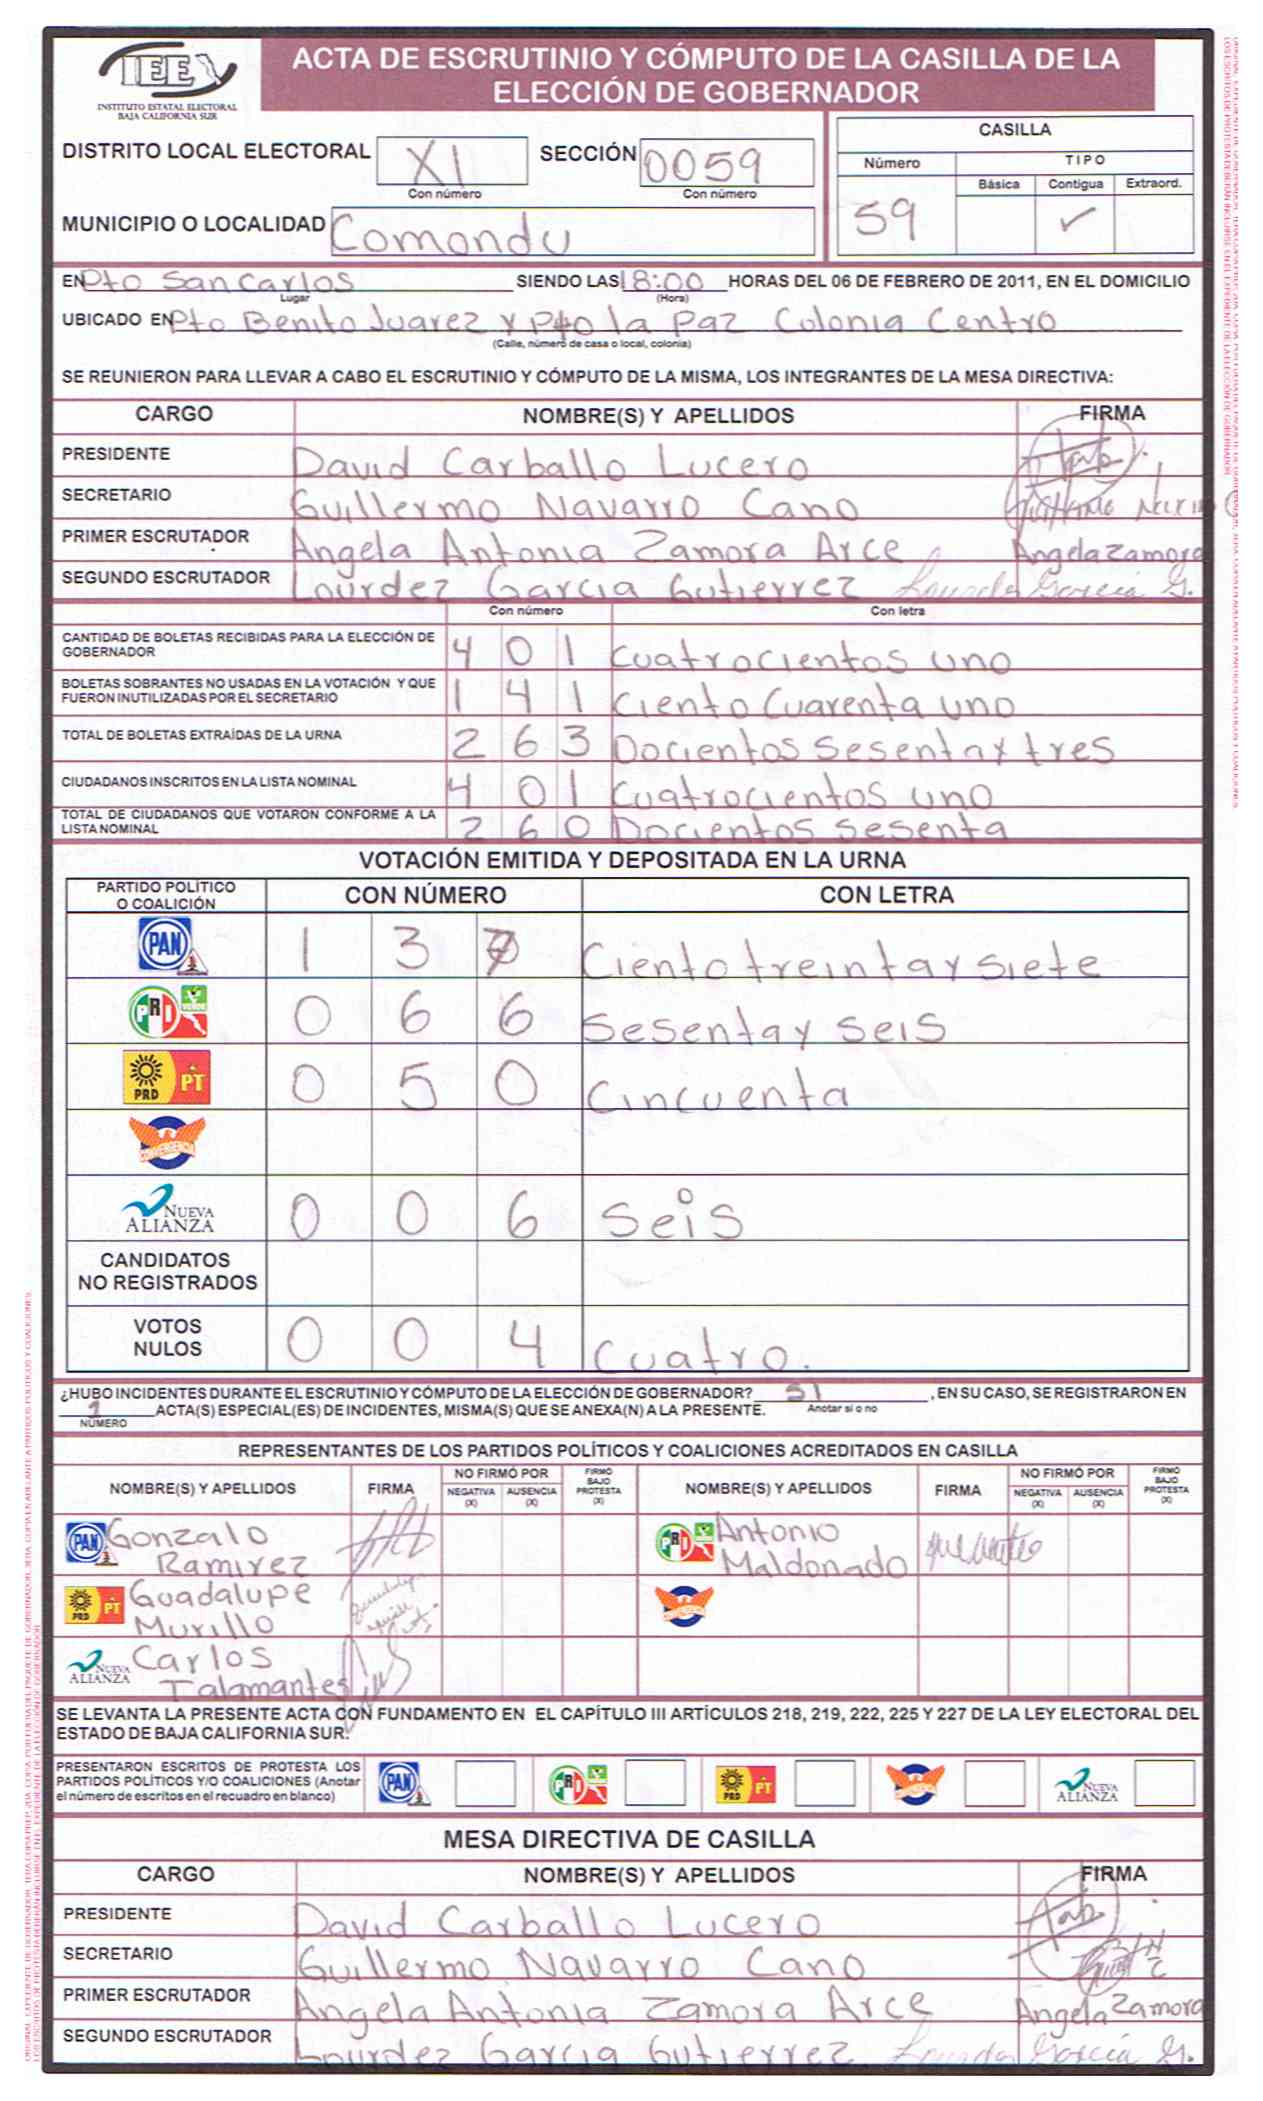 IEE
INSTITUTO ESTATAL ELECTORAL
BAJA CALIFORNIA SUR
ACTA DE ESCRUTINIO Y CÓMPUTO DE LA CASILLA DE LA
ELECCIÓN DE GOBERNADOR
DISTRITO LOCAL ELECTORAL XI SECCIÓN 0059
Con número Con número
MUNICIPIO O LOCALIDAD Comondu
CASILLA
Número TIPO
Básica Contigua Extraord.
59 ✓
EN Pto San Carlos SIENDO LAS 18:00 HORAS DEL 06 DE FEBRERO DE 2011, EN EL DOMICILIO
Lugar (Hora)
UBICADO EN Pto Benito Juarez y Pto la Paz Colonia Centro
(Calle, número de casa o local, colonia)
SE REUNIERON PARA LLEVAR A CABO EL ESCRUTINIO Y CÓMPUTO DE LA MISMA, LOS INTEGRANTES DE LA MESA DIRECTIVA:
CARGO NOMBRE(S) Y APELLIDOS FIRMA
PRESIDENTE David Carballo Lucero
SECRETARIO Guillermo Navarro Cano
PRIMER ESCRUTADOR Angela Antonia Zamora Arce Angela Zamora
SEGUNDO ESCRUTADOR Lourdez Garcia Gutierrez Lourdes García G.
Con número Con letra
CANTIDAD DE BOLETAS RECIBIDAS PARA LA ELECCIÓN DE
GOBERNADOR 4 0 1 Cuatrocientos uno
BOLETAS SOBRANTES NO USADAS EN LA VOTACIÓN Y QUE
FUERON INUTILIZADAS POR EL SECRETARIO 1 4 1 Ciento Cuarenta uno
TOTAL DE BOLETAS EXTRAÍDAS DE LA URNA 2 6 3 Docientos Sesenta y tres
CIUDADANOS INSCRITOS EN LA LISTA NOMINAL 4 0 1 Cuatrocientos uno
TOTAL DE CIUDADANOS QUE VOTARON CONFORME A LA
LISTA NOMINAL 2 6 0 Docientos Sesenta
VOTACIÓN EMITIDA Y DEPOSITADA EN LA URNA
PARTIDO POLÍTICO
O COALICIÓN CON NÚMERO CON LETRA
PAN 1 3 7 Ciento treinta y siete
PRI VERDE 0 6 6 Sesenta y seis
PRD PT 0 5 0 Cincuenta
CONVERGENCIA
NUEVA ALIANZA 0 0 6 Seis
CANDIDATOS
NO REGISTRADOS
VOTOS
NULOS 0 0 4 Cuatro.
¿HUBO INCIDENTES DURANTE EL ESCRUTINIO Y CÓMPUTO DE LA ELECCIÓN DE GOBERNADOR? SI , EN SU CASO, SE REGISTRARON EN
1 ACTA(S) ESPECIAL(ES) DE INCIDENTES, MISMA(S) QUE SE ANEXA(N) A LA PRESENTE. Anotar si o no
NÚMERO
REPRESENTANTES DE LOS PARTIDOS POLÍTICOS Y COALICIONES ACREDITADOS EN CASILLA
NOMBRE(S) Y APELLIDOS FIRMA NO FIRMÓ POR FIRMÓ BAJO PROTESTA (X) NOMBRE(S) Y APELLIDOS FIRMA NO FIRMÓ POR FIRMÓ BAJO PROTESTA (X)
NEGATIVA (X) AUSENCIA (X) NEGATIVA (X) AUSENCIA (X)
PAN Gonzalo PRI VERDE Antonio
Ramirez Maldonado
PRD PT Guadalupe CONVERGENCIA
Murillo
NUEVA ALIANZA Carlos
Talamantes
SE LEVANTA LA PRESENTE ACTA CON FUNDAMENTO EN EL CAPÍTULO III ARTÍCULOS 218, 219, 222, 225 Y 227 DE LA LEY ELECTORAL DEL
ESTADO DE BAJA CALIFORNIA SUR.
PRESENTARON ESCRITOS DE PROTESTA LOS
PARTIDOS POLÍTICOS Y/O COALICIONES (Anotar
el número de escritos en el recuadro en blanco) PAN PRI PRD PT CONVERGENCIA NUEVA ALIANZA
MESA DIRECTIVA DE CASILLA
CARGO NOMBRE(S) Y APELLIDOS FIRMA
PRESIDENTE David Carballo Lucero
SECRETARIO Guillermo Navarro Cano
PRIMER ESCRUTADOR Angela Antonia Zamora Arce Angela Zamora
SEGUNDO ESCRUTADOR Lourdez Garcia Gutierrez Lourdes García G.